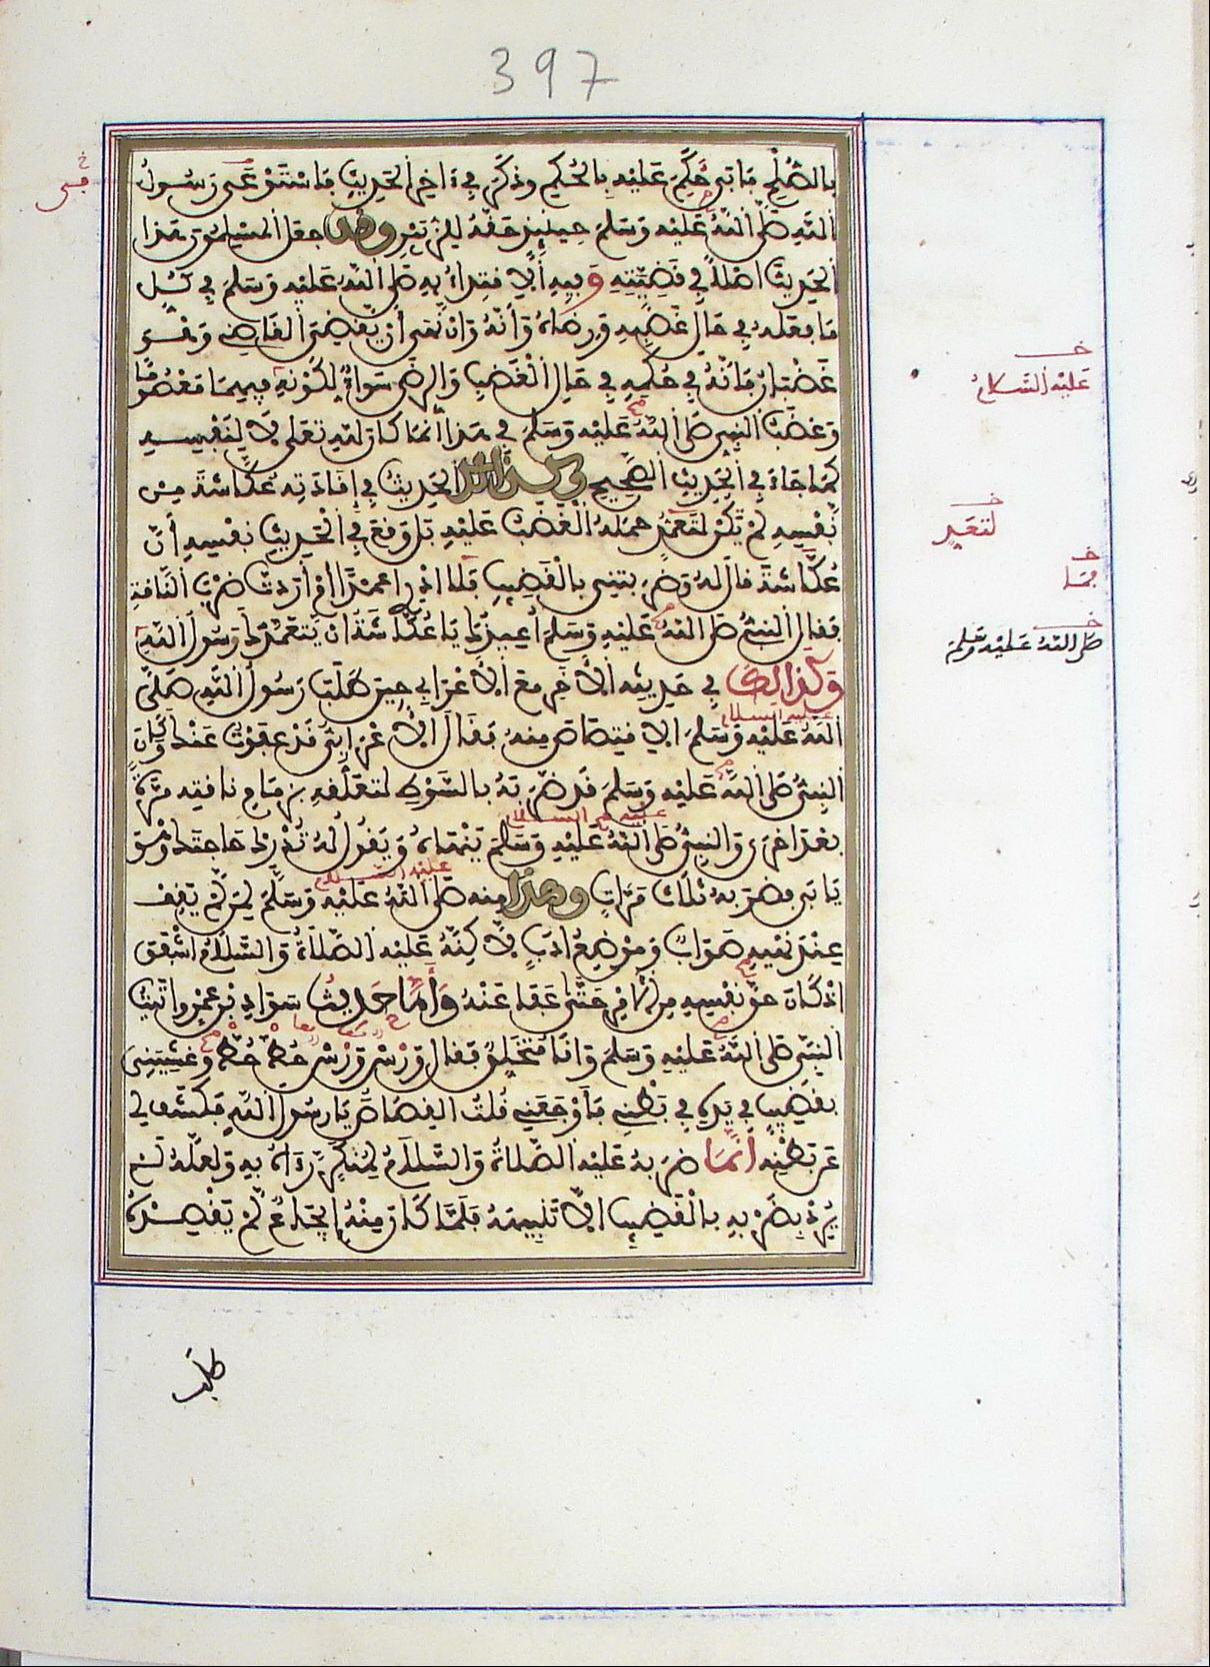 397
بالصُّلْحِ فَأَبَى حَكَمَ عَلَيْهِ بِالحُكْمِ وذَكَرَ فِي ءَاخِرِ الحَدِيثِ فَاسْتَوْعَى رَسُولُ
اللهِ صَلَّى اللهُ عَلَيْهِ وَسَلَّمَ حِينَئِذٍ حَقَّهُ لِلزُّبَيْرِ وقد جعل المسلمون هَذَا
الحَدِيثَ اصْلًا فِي قَضِيَّتِهِ وَفِيهِ الِاقْتِدَاءُ بِهِ صَلَّى اللهُ عَلَيْهِ وَسَلَّمَ فِي كُلِّ
مَا فَعَلَهُ فِي حَالِ غَضَبِهِ وَرِضَاهُ وَأَنَّهُ وَانْ نَهَى أَنْ يَقْضِيَ القَاضِي وَهُوَ
غَضْبَانُ فَانَّهُ فِي حُكْمِهِ فِي حَالِ الْغَضَبِ وَالرِّضَى سَوَاءٌ لِكَوْنِهِ فِيهِمَا مَعْصُومًا
وَغَضَبُ النَّبِيِّ صَلَّى اللهُ عَلَيْهِ وَسَلَّمَ فِي هَذَا انَّمَا كَانَ لِلهِ تعلى لَا لِنَفْسِهِ
كَمَا جَاءَ فِي الْحَدِيثِ الصَّحِيحِ وكذلك الحَدِيثُ فِي إِقَادَتِهِ عُكَّاشَةَ مِنْ
نَفْسِهِ لَمْ تَكُنْ لِتَعَمُّدٍ حَمَلَهُ الْغَضَبُ عَلَيْهِ بَلْ وَقَعَ فِي الْحَدِيثِ نَفْسِهِ أَنَّ
عُكَّاشَةَ قَالَ لَهُ وَضَرَبْتَنِي بِالْقَضِيبِ فَلَا ادْرِي اعَمْدًا أَمْ أَرَدْتَ ضَرْبَ النَّاقَةِ
فَقَالَ النَّبِيُّ صَلَّى اللهُ عَلَيْهِ وَسَلَّمَ أُعِيذُكَ يَا عُكَّاشَةُ انْ يَتَعَمَّدَكَ رَسُولُ اللهِ
وَكَذَالِكَ فِي حَدِيثِهِ الْآخَرِ مَعَ الْأَعْرَابِي حِينَ طَلَبَ رَسُولُ اللهِ صَلَّى
عليه السلام
اللهُ عَلَيْهِ وَسَلَّمَ الِاقْتِصَاصَ مِنْهُ فَقَالَ الْأَعْرَابِيُّ قَدْ عَفَوْتُ عَنْكَ وَكَانَ
النَّبِيُّ صَلَّى اللهُ عَلَيْهِ وَسَلَّمَ قَدْ ضَرَبَهُ بِالسَّوْطِ لِتَعَلُّقِهِ بِزِمَامِ نَاقَتِهِ مَرَّةً
بَعْدَ اخْرَى وَالنَّبِيُّ صَلَّى اللهُ عَلَيْهِ وَسَلَّمَ يَنْهَاهُ وَيَقُولُ لَهُ تُدْرِكُ حَاجَتَكَ وَهُوَ
عليه السلام
يَابَى فضَرَبَهُ ثَلَاثَ مَرَّاتٍ وهذا منه صَلَّى اللهُ عَلَيْهِ وَسَلَّمَ لِمَنْ لَمْ يَقِفْ
عِنْدَ نَهْيِهِ صَوَابٌ وَمَوْضِعُ ادَبٍ لَكِنَّهُ عَلَيْهِ الصَّلَاةُ وَالسَّلَامُ اشْفَقَ
اذْ كَانَ حَقَّ نَفْسِهِ مِنَ الْأَمْرِ حَتَّى عَفَا عَنْهُ وَأَمَّا حَدِيثُ سَوَادِ بْنِ عَمْرٍو اتَيْتُ
النَّبِيَّ صَلَّى اللهُ عَلَيْهِ وَسَلَّمَ وَانَا مُتَخَلِّقٌ فَقَالَ وَرْسٌ وَرْسٌ حُطَّ حُطَّ وغَشِيَنِي
بِقَضِيبٍ فِي يَدِهِ فِي بَطْنِي فَأَوْجَعَنِي قُلْتُ القِصَاصَ يَا رَسُولَ اللهِ فَكَشَفَ لِي
عَنْ بَطْنِهِ انَّمَا ضَرَبَهُ عَلَيْهِ الصَّلَاةُ وَالسَّلَامُ لِمُنْكَرٍ رَءَاهُ بِهِ وَلَعَلَّهُ لَمْ
يُرِدْ بِضَرْبِهِ بِالْقَضِيبِ الَّا تَنْبِيهَهُ فَلَمَّا كَانَ مِنْهُ إِيجَاعٌ لَمْ يَقْصِدْهُ
طلب
خ
عَلَيْهِ السَّلَامُ
خ
لتعد
خ
فما
خ
صَلَّى اللهُ عَلَيْهِ وَسَلَّمَ